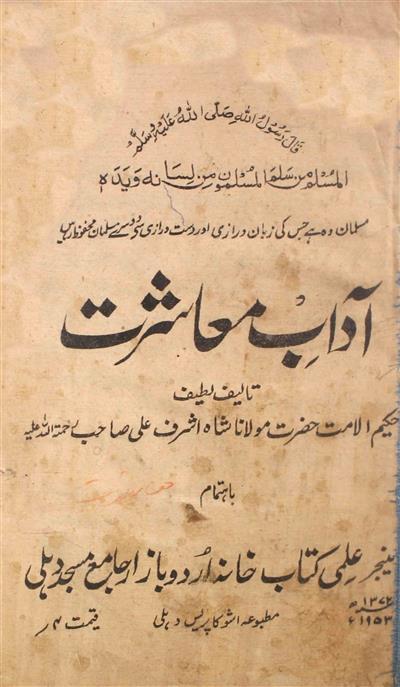 قال رسول اللہ صلی اللہ علیہ وسلم
المسلم من سلم المسلمون من لسانه ویده
مسلمان وہ ہے جس کی زبان درازی اور دست درازی سے دوسرے مسلمان محفوظ رہیں
آدابِ معاشرت
تالیف لطیف
حکیم الامت حضرت مولانا شاہ اشرف علی صاحب رحمۃ اللہ علیہ
باہتمام
منیجر علمی کتاب خانہ اردو بازار جامع مسجد دہلی
۱۳۷۲ھ
۱۹۵۳ء مطبوعہ اشوکا پریس دہلی قیمت ۴؍